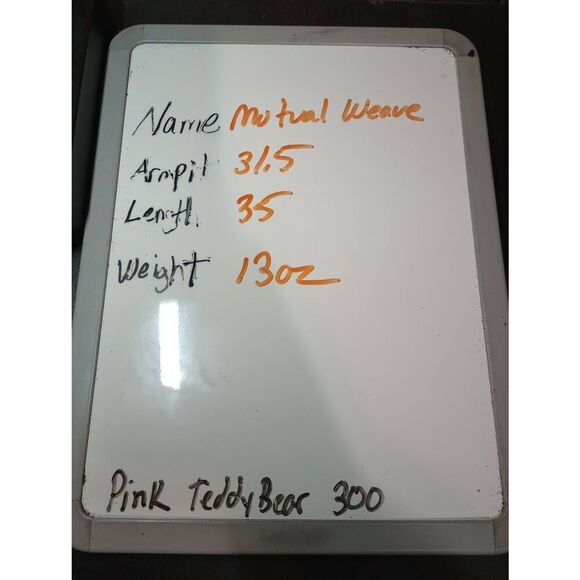 Name Mutual Weave
Armpit 31.5
Length 35
Weight 13oz
Pink TeddyBear 300